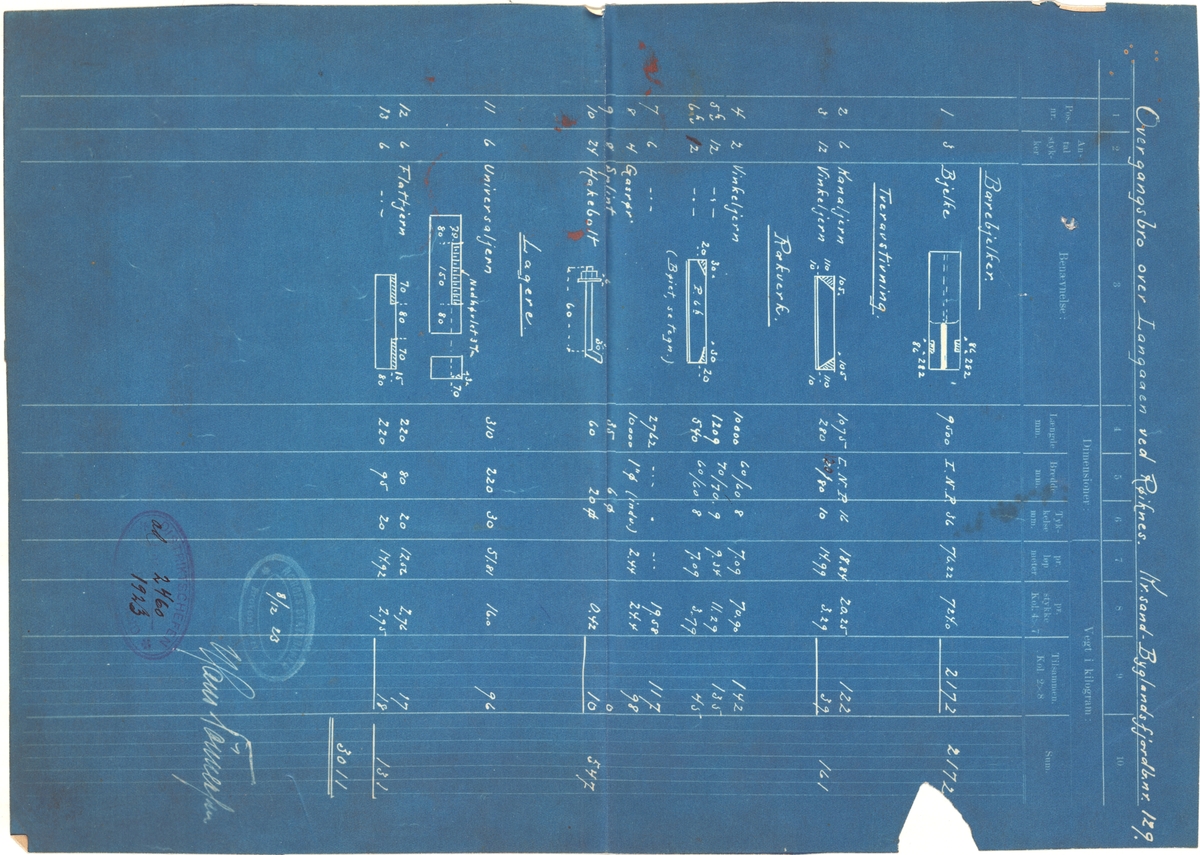 Overgangsbro over Langaaen ved Røiknes. Kr.sand-Byglandsfjordbnr. 129.
1 2 3 4 5 6 7 8 9 10
Pos. nr. Antal styk-ker Benævnelse: Dimensioner Vegt i kilogram:
Længde mm. Bredde mm. Tyk-kelse mm. pr. løp. meter pr. stykke Kol. 4×7 Tilsammen. Kol. 2×8 Sum.
Bærebjelker.
1 3 Bjelke 9500 I.N.P. 36 76.22 724.0 2172 2172
86 282
86 282
Tveravstivning.
2 6 Kanaljern 1075 [.N.P. 16 18.84 20.25 122
3 12 Vinkeljern 220 /80 10 14.99 3.29 39 161
105. 105
110 110
10 10
Rækverk.
4 2 Vinkeljern 10000 60/60 8 7.09 70.90 142
5 12 -.- 1209 70/70 9 9.34 11.29 135
6 12 -.- 540 60/60 8 7.09 3.79 45
20 30. P. 66 .30 20
(Bøiet, se tegn.)
7 6 -.- 2762 -.- -.- 19.58 117
8 4 Gasrør 10000 1"φ (indv.) 2.44 24.4 98
9 8 Splint 35 6 φ 0
10 24 Hakebolt 60 20 φ 0.42 10 547
60
30
Lagere.
11 6 Universaljern 310 220 30 51.81 16.0 96
Nedhøvlet
70
80 150 80
70
12 6 Flattjern 220 80 20 12.56 2.76 17
13 6 -.- 220 95 20 14.92 2.95 18 131
70 80 70
15
80
3011
8/12 23
ad 2460
1923